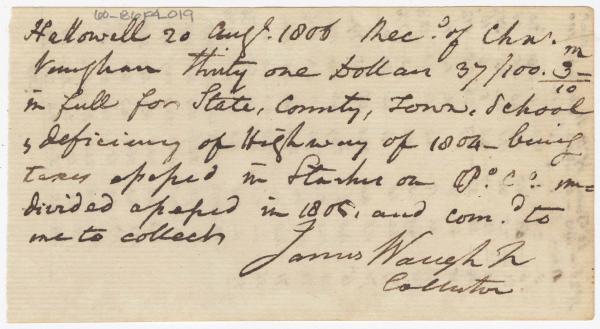 60-86F4-019
Hallowell 20 Augt. 1806 Recd. of Chas.
Vaughan thirty one Dollars 37/100. 3m/10
in full for State, County, Town, School
& deficiency of Highway of 1804 - being
taxes assessed in Starks on Po. Co. un=
divided assessed in 1805, and com.d to
me to collect
James Waugh Jr
Collector